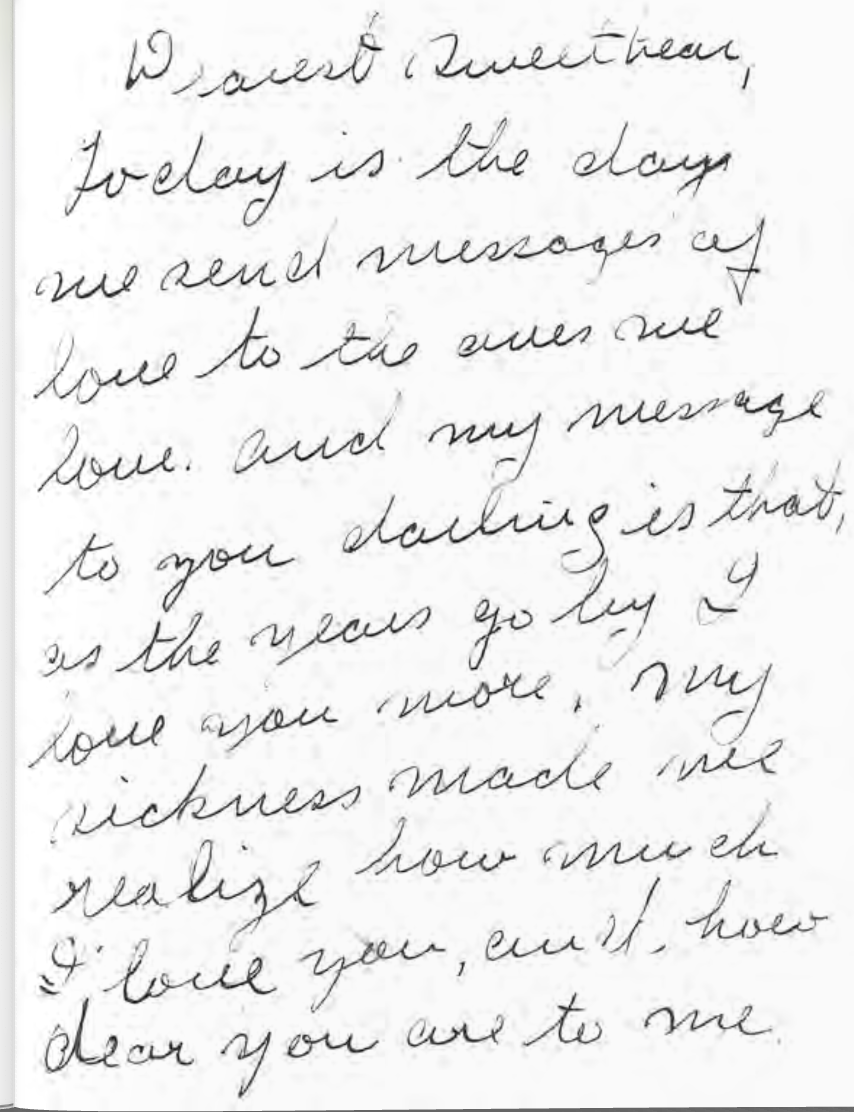 Dearest Sweetheart,
Today is the day
we send messages of
love to the ones we
love. And my message
to you darling is that,
as the years go by I
love you more. My
sickness made me
realize how much
I love you, and, how
dear you are to me.